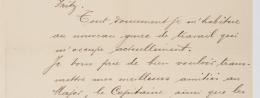 Fritz.
Tout doucement je m'habitue
au nouveau genre de travail qui
m'occupe actuellement.
Je vous prie de bien vouloir trans-
mettre mes meilleurs amitiés au
Major, le Capitaine ainsi que les